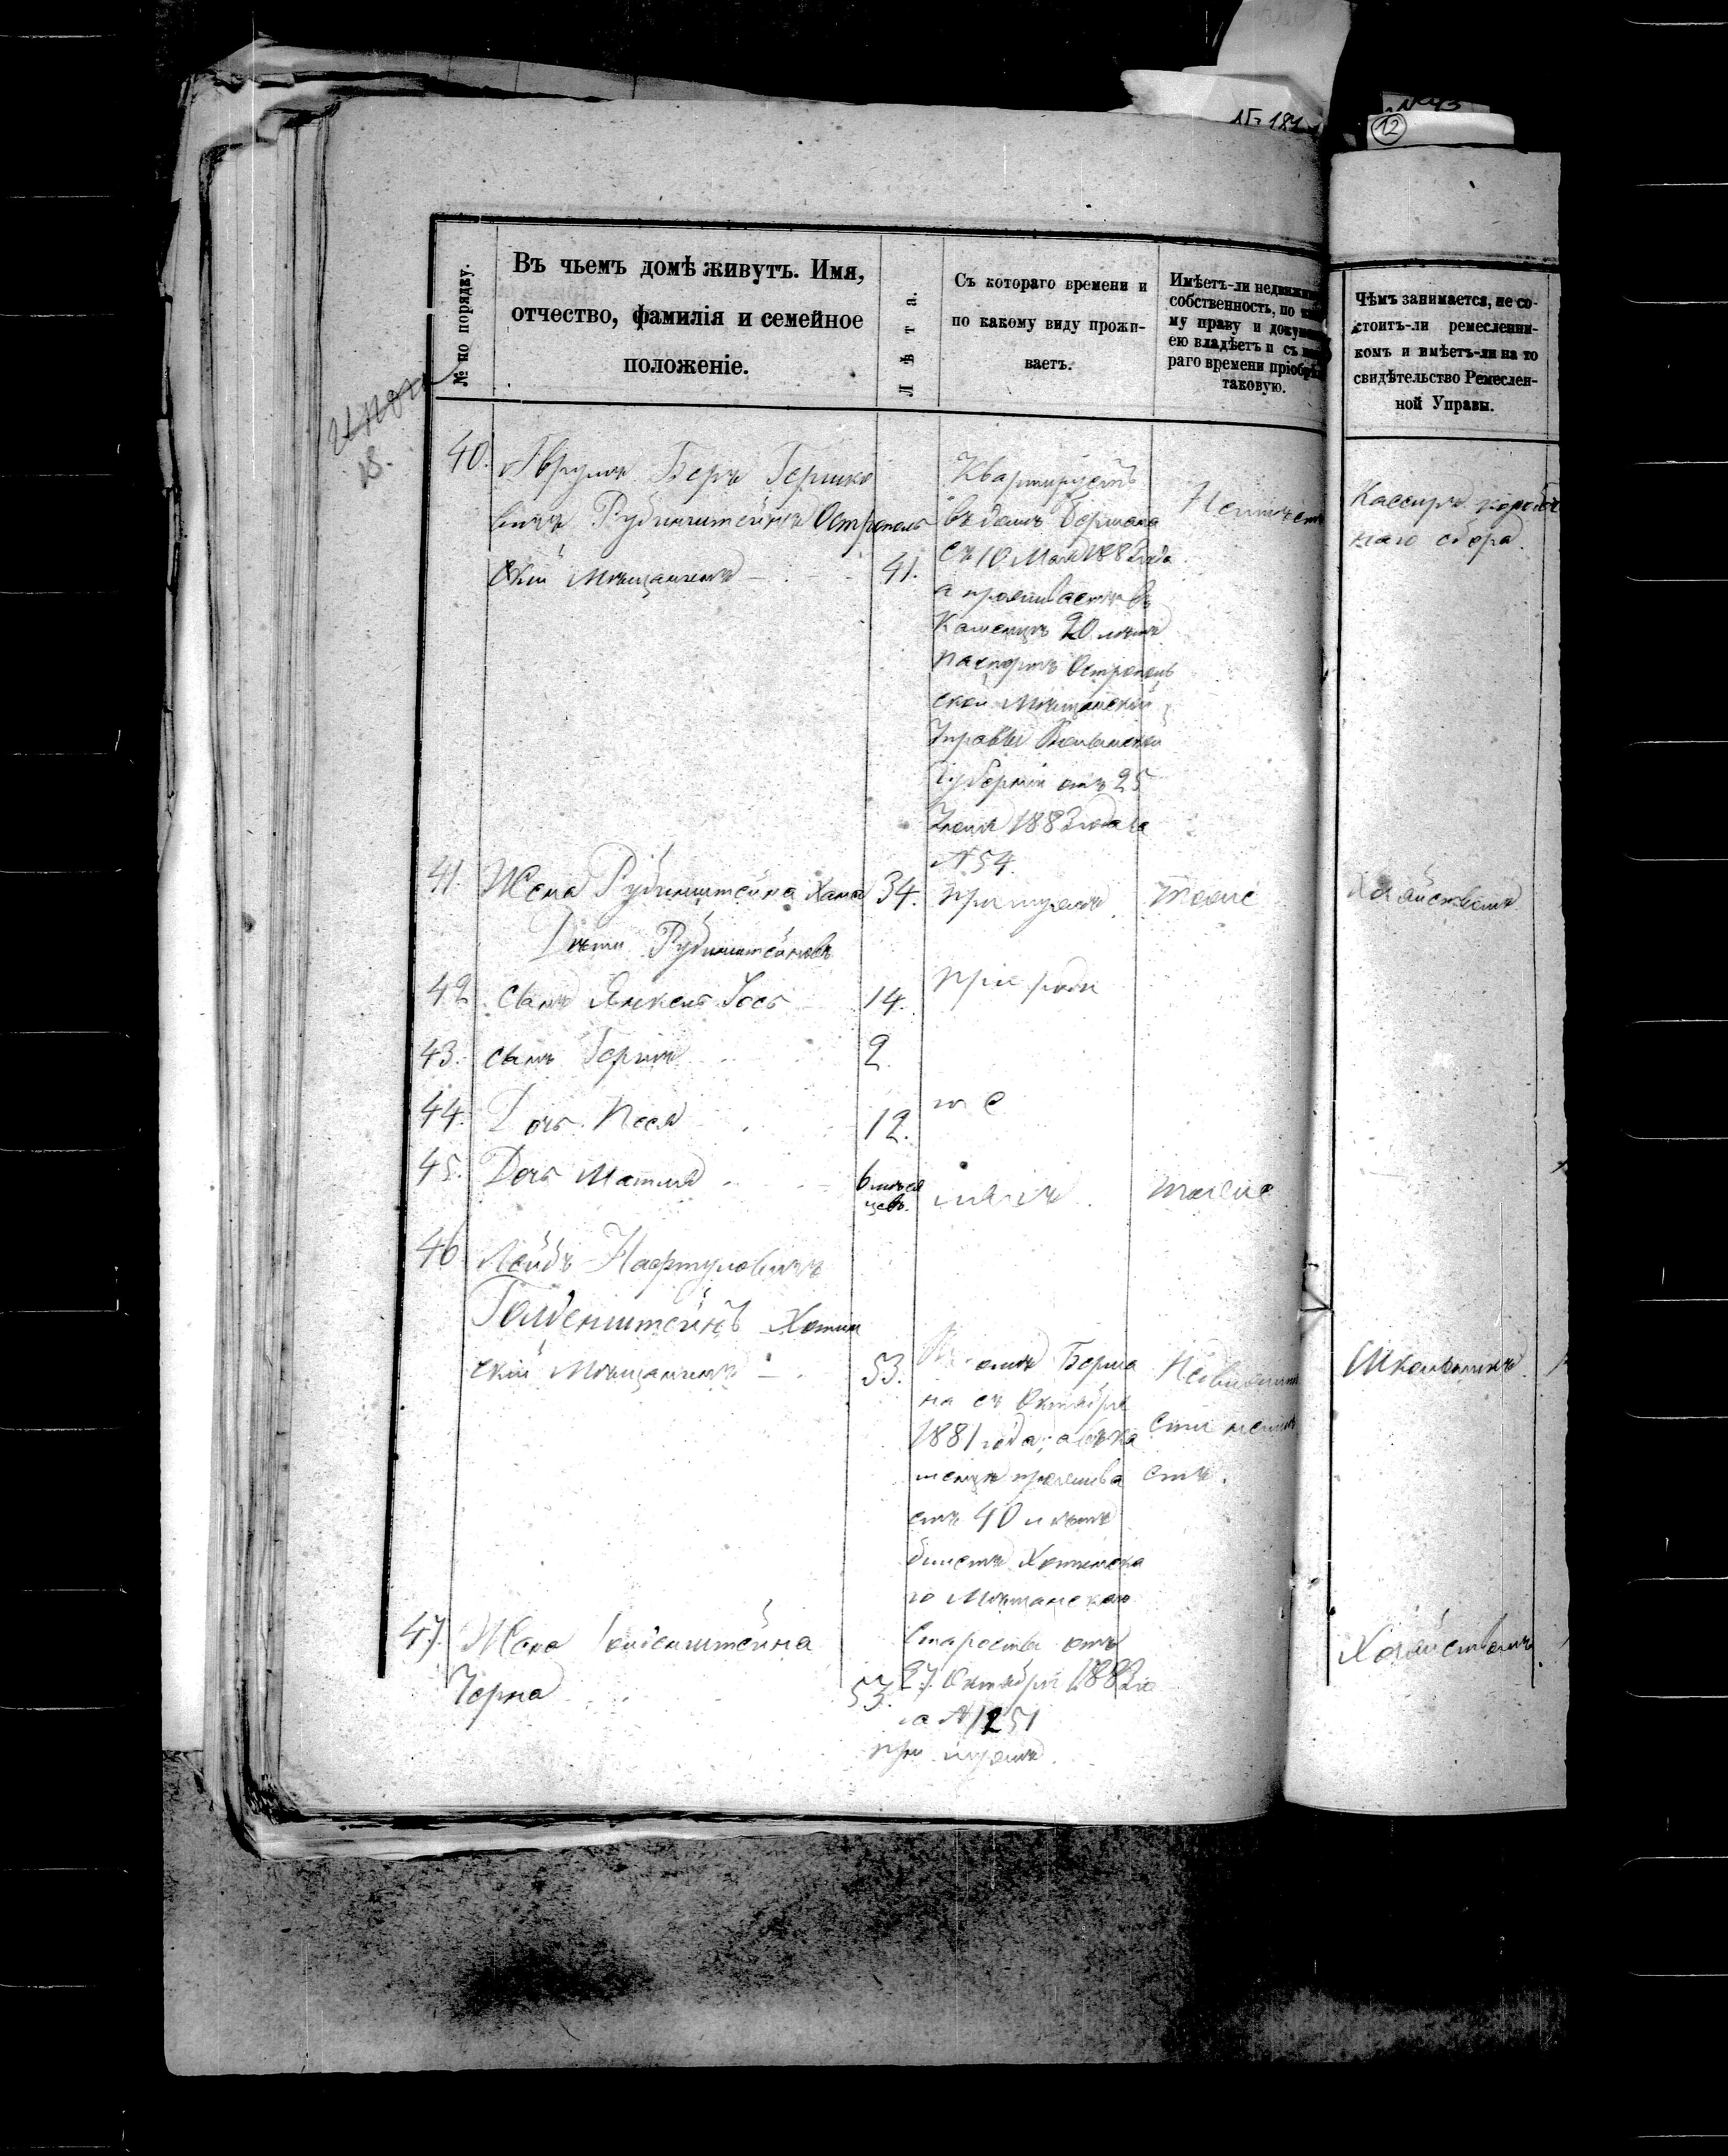 № 181
№ 43
12
№ по порядку.
Въ чьемъ домѣ живутъ. Имя,
отчество, фамилія и семейное
положеніе.
Лѣта.
Съ котораго времени и
по какому виду прожи-
ваетъ.
Имѣетъ-ли недвижим
собственность, по
му праву и докум
ею владѣетъ и съ
раго времени пріобрѣ
таковую.
Чѣмъ занимается, не со-
стоитъ-ли ремесленни-
комъ и имѣетъ-ли на то
свидѣтельство Ремеслен-
ной Управы.
18.
40. Аврумъ Беръ Гершко
вичъ Рубинштейнъ Острополь
скій Мѣщанинъ 41.
Квартируетъ
въ домѣ Бермана
съ 10 Мая 1882 года
а проживаетъ въ
Каменцѣ 20 лѣтъ
паспортъ Острополь
ской Мѣщанской
Управы Волынской
Губерніи отъ 25
1883 года за
№ 54.
Неимѣетъ
Кассиръ коробо
чнаго сбора.
41. Жена Рубинштейна Хана 34. при мужѣ тоже Хозяйствомъ
Дѣти Рубинштейновъ
42 сынъ Янкель Іось 14. при роди
43. сынъ Гершъ 2
44. Дочь Песя 12.
45. Дочь Матля 6 мѣся
цевъ. тоже
46 Лейбъ Нафтуловичъ
Голденштейнъ Хотин
скій Мѣщанинъ 53.
домѣ Берма
на съ Октября
1881 года, а въ Ка
менцѣ прожива
етъ 40 лѣтъ
билетъ Хотинска
го Мѣщанскаго
Старосты отъ
27 Октября 1883 го
за № 1251
Недвижимо
сти неимѣ
етъ.
Школьникъ
47. Жена Голденштейна
Черна 53. при мужѣ.
Хозяйствомъ